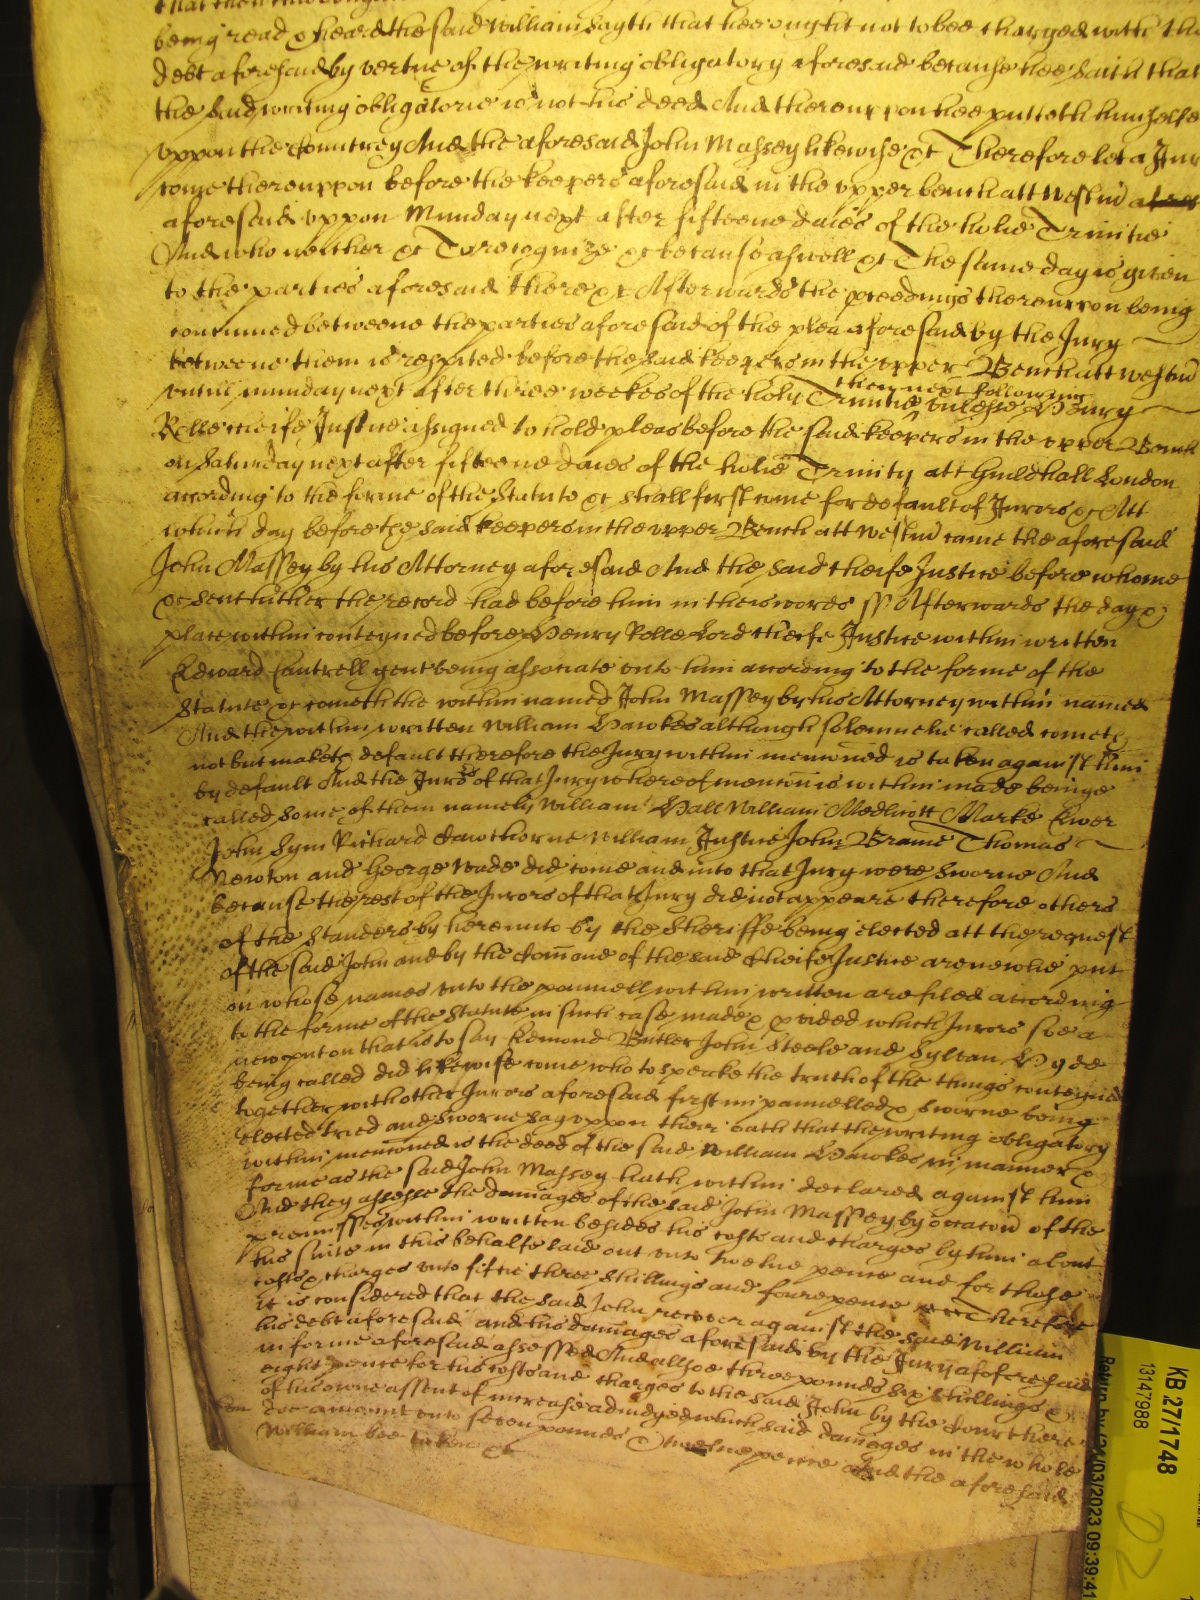 being read & heard the said William sayth that hee ought not to bee charged with the
debt aforesaid by vertue of the writing obligatory aforesaid because hee saith that
the said writing obligatorie is not his deed And thereuppon hee putteth himselfe
uppon the Countrey And the aforesaid John Massey likewise &c Therefore let a Jury
come thereuppon before the keepers aforesaid in the upper bench att Westm
aforesaid uppon Munday next after fifteene daies of the holie Trinitie
And who neither &c To recognize &c because aswell &c The same day is given
to the parties aforesaid there &c Afterwards the pceedings thereuppon being
continued betweene the parties aforesaid of the plea aforesaid by the Jury
betweene them is respited before the said keepers in the upper Bench att Westm
untill munday next after three weekes of the holy Trinitie then next following unlesse Henry
Rolle cheife Justice assigned to hold pleas before the said keepers in the upper Bench
on Saturday next after fifteene daies of the holie Trinity att Guildhall London
according to the forme of the Statute &c shall first come for default of Jurors &c Att
which day before the said keepers in the upper Bench att Westm came the aforesaid
John Massey by his Attorney aforesaid And the said cheife Justice before whome
&c sent hither the record had before him in theis words ss Afterwards the day &
place within conteyned before Henry Rolle Lord cheife Justice within written
Edward Cantrell gent being associate unto him according to the forme of the
Statute &c cometh the within named John Massey by his Attorney within named
And the within written William Hawkes although solemnelie called cometh
not but maketh default therefore the Jury within menconed is taken against him
by default And the Jurors of that Jury whereof mencon is within made beinge
called some of them namely William Hall William Medlicott Marke
John Sym Richard Cawthorne William Justice John Brame Thomas
Newton and George Wade did come and into that Jury were sworne And
because the rest of the Jurors of that Jury did not appeare therefore others
of the Standers by hereunto by the Sheriffe being elected att the request
of the said John and by the Comand of the said Cheife Justice are newlie put
on whose names unto the pannell within written are filed according
to the forme of the Statute in such case made & pvided which Jurors soe a
new put on that is to say Edmond Butler John Steele and Sylvan Hyde
being called did likewise come who to speake the truth of the things conteyned
together with other Jurors aforesaid first impannelled & sworne being
elected tried and sworne say uppon their oath that the writing obligatory
within menconed is the deed of the said William Hawkes in manner &
forme as the said John Massey hath within declared against him
And they assesse the damages of the said John Massey by occacon of the
premisses within written besides his costs and charges by him about
his suite in this behalfe laid out unto twelve pence and for those
costs & charges unto fiftie three shillings and foure pence Therefore
it is considered that the said John recover against the said William
his debt aforesaid and his damages aforesaid by the Jury aforesaid
in forme aforesaid assessed And allsoe three pounds six shillings &
eight pence for his costs and charges to the said John by the Court here
of his owne assent of increase adiudged which said damages in the whole
doe amount unto seven pounds And the aforesaid
William bee taken &c
KB 27/1748
13147988
Return by (21/03/2023 09:39:41
D2